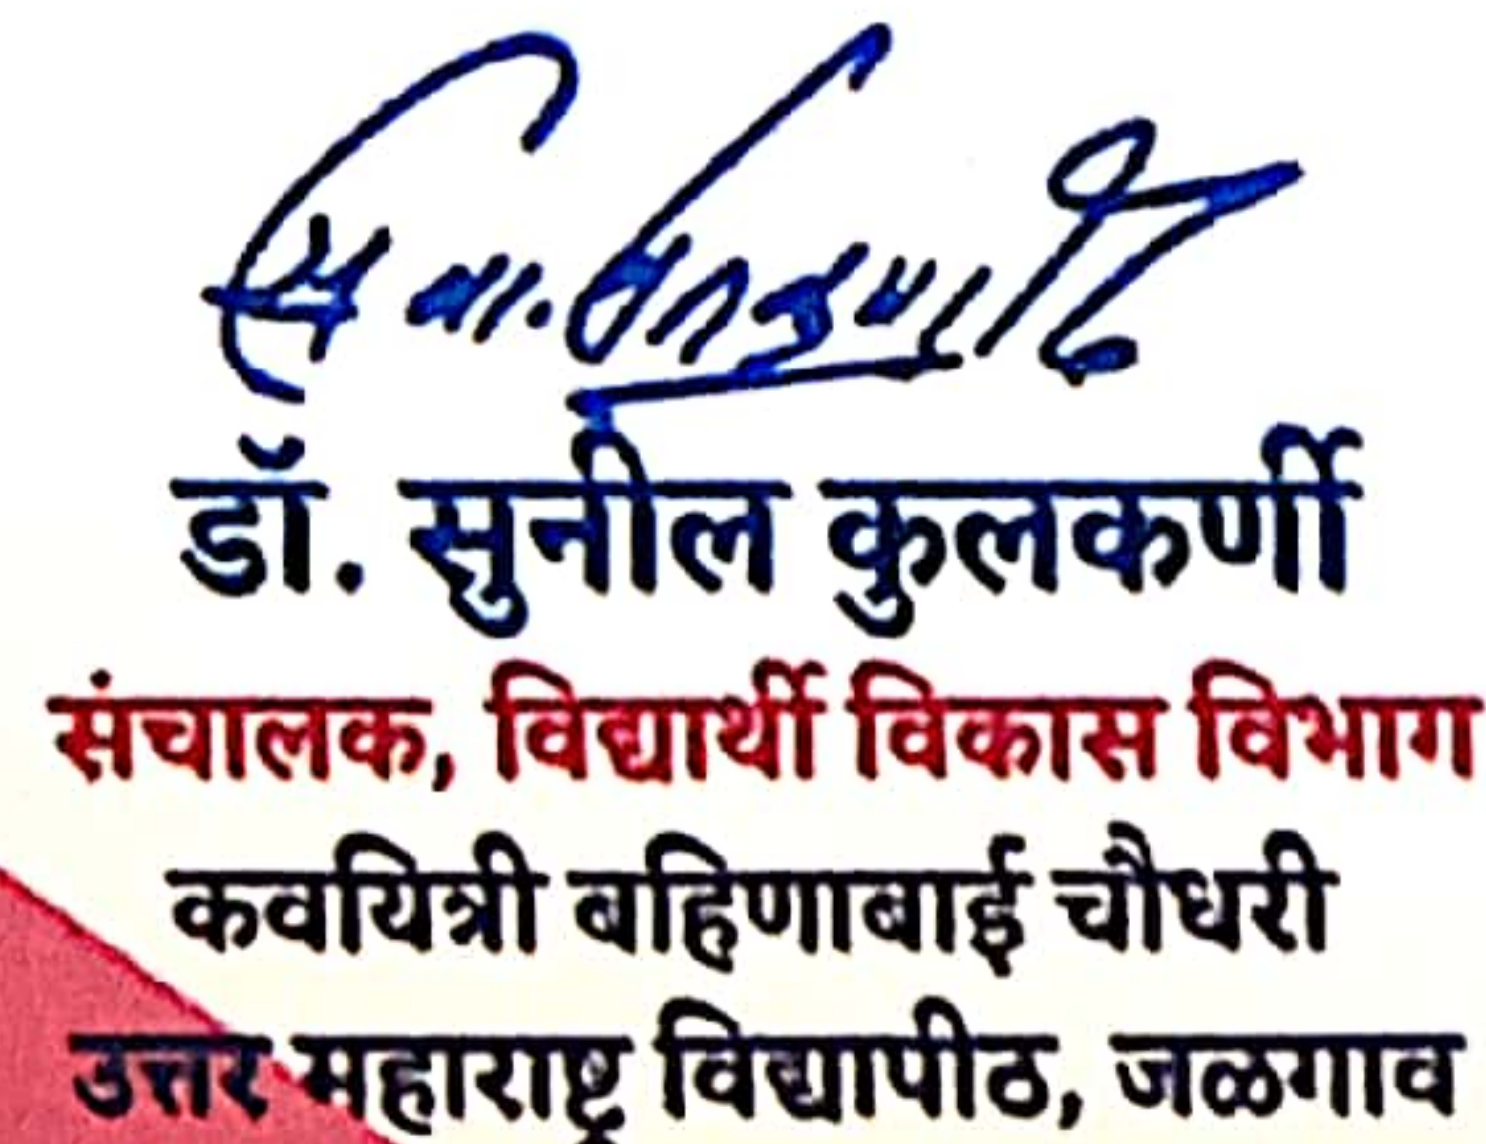 डॉ. सुनील कुलकर्णी
संचालक, विद्यार्थी विकास विभाग
कवयित्री बहिणाबाई चौधरी
उत्तर महाराष्ट्र विद्यापीठ, जळगाव